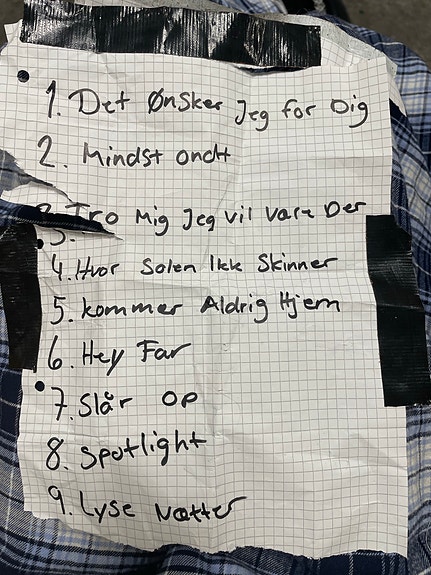 1. Det Ønsker Jeg for Dig
2. Mindst ondt
3. Tro Mig Jeg vil være Der
4. Hvor Solen Ikk Skinner
5. kommer Aldrig Hjem
6. Hey Far
7. Slår op
8. Spotlight
9. Lyse Nætter